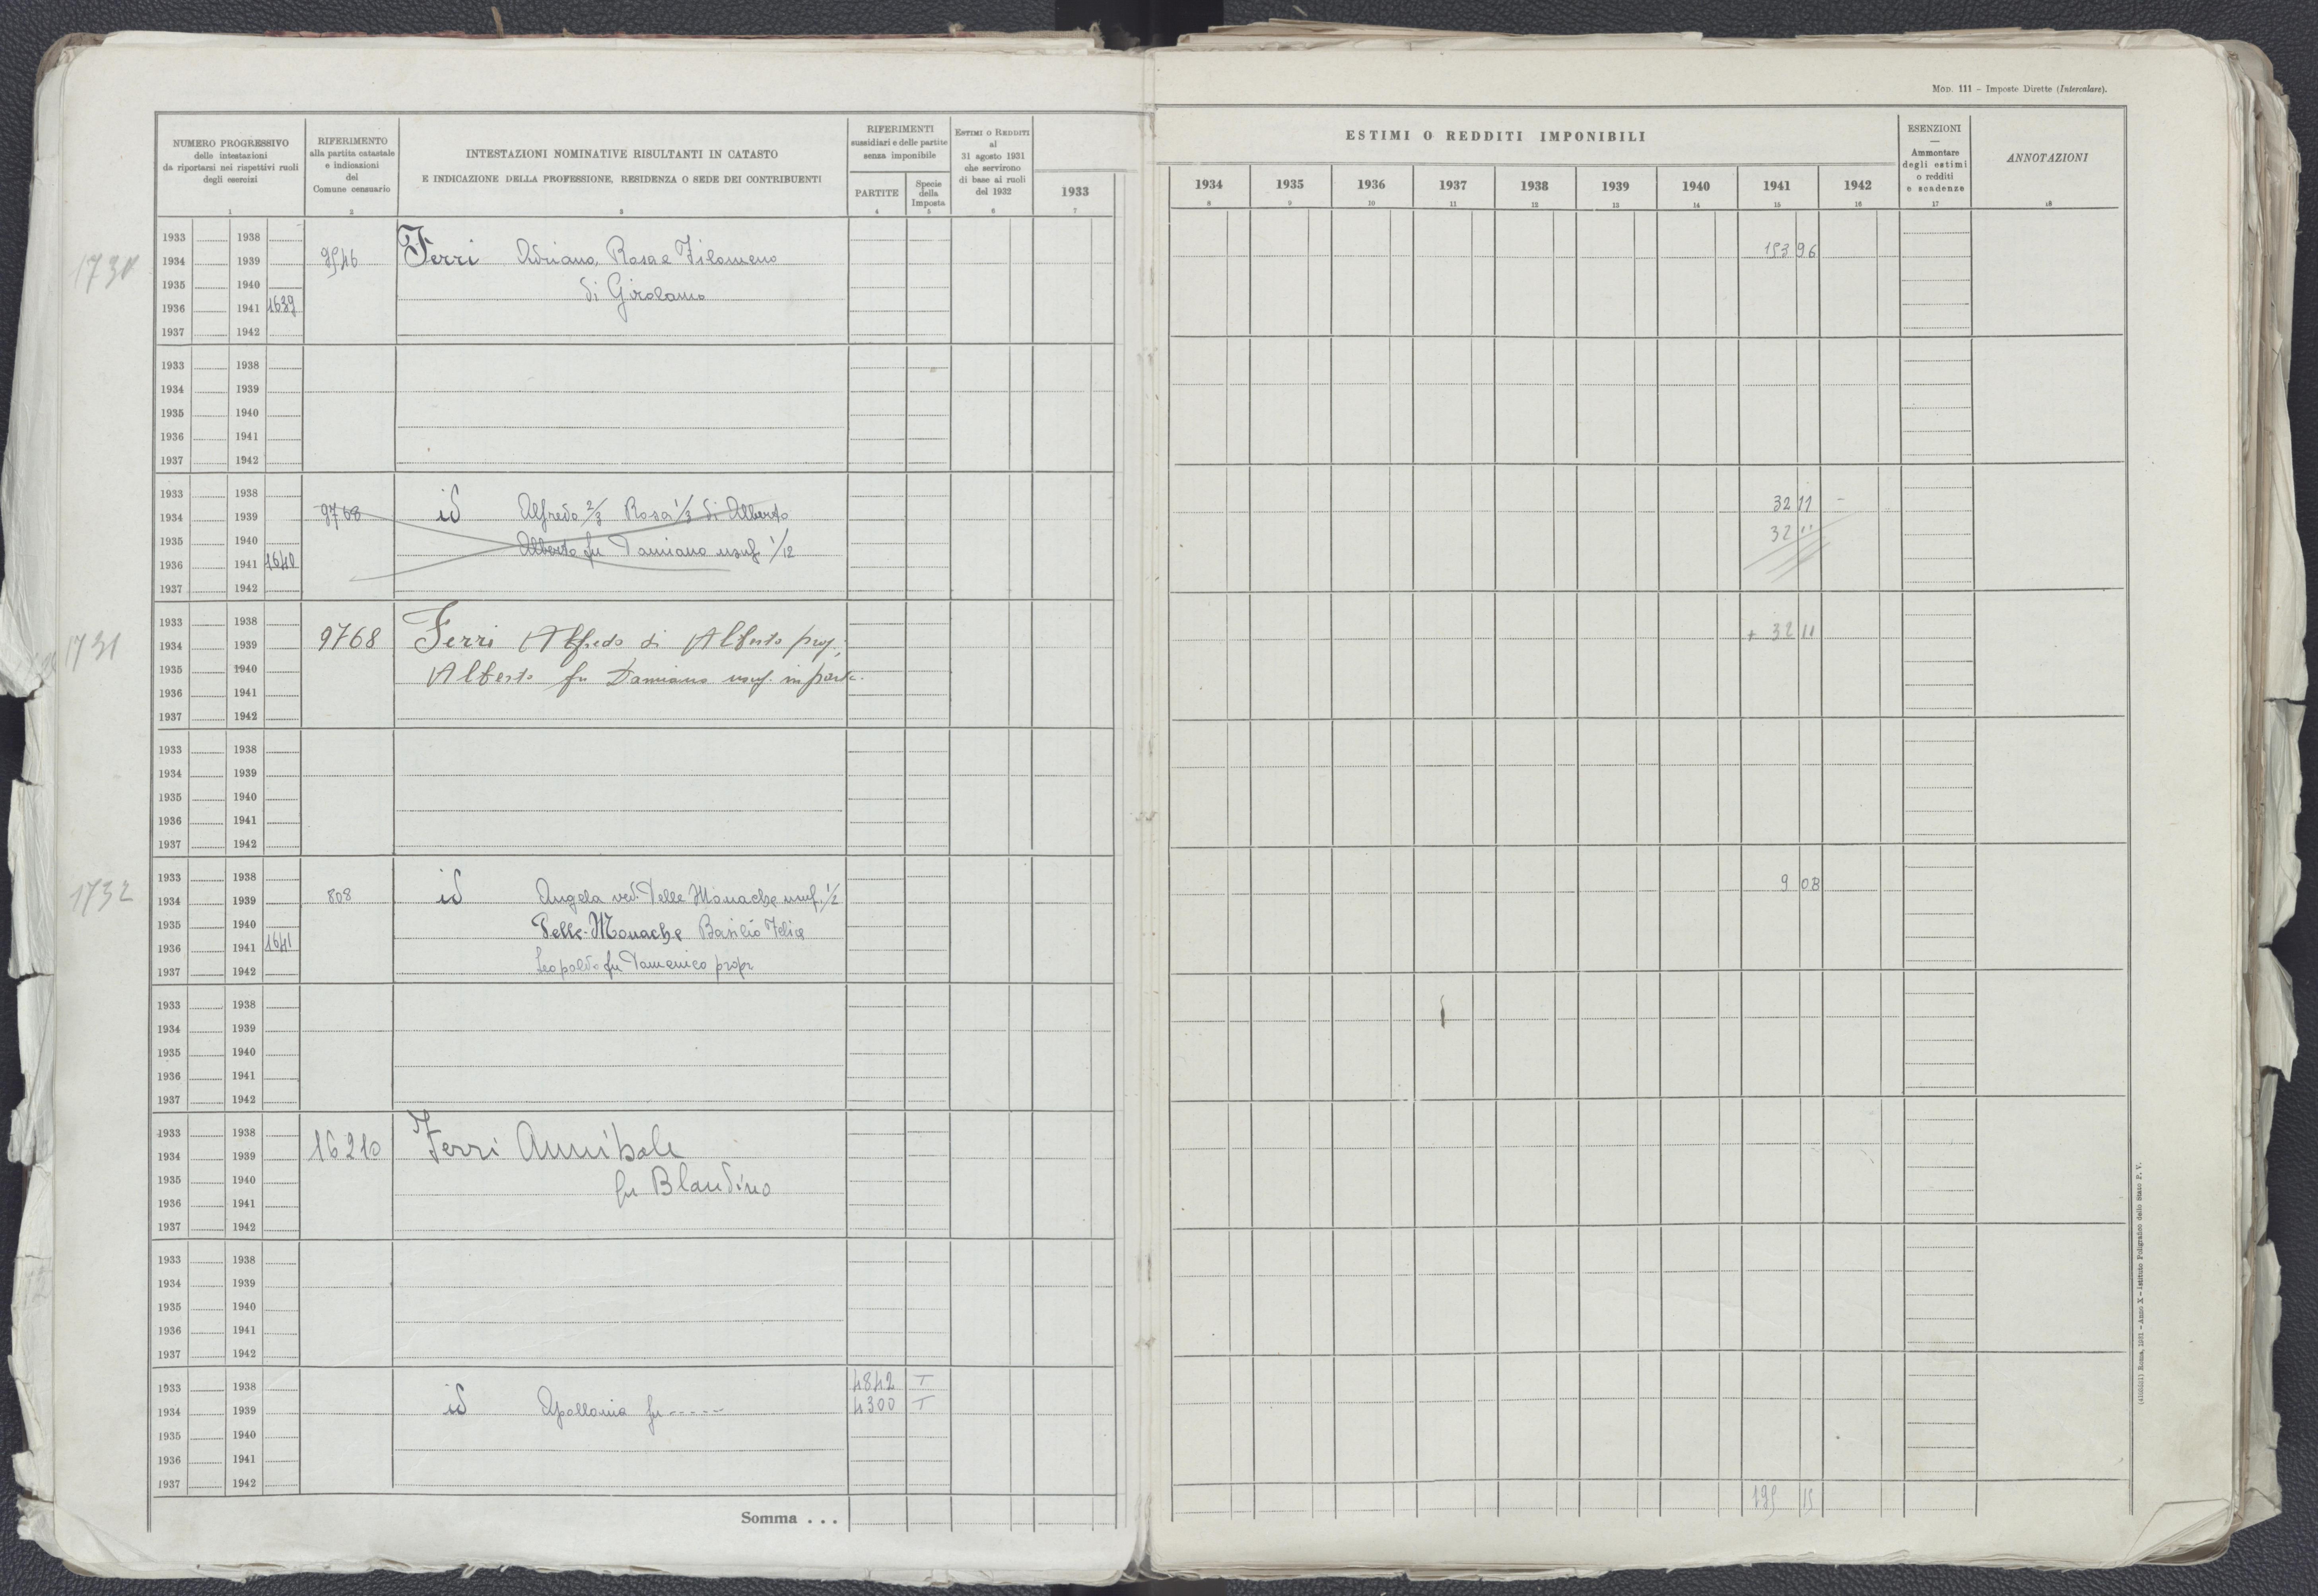 MOD. 111 – Imposte Dirette (Intercalare).
NUMERO PROGRESSIVO
delle intestazioni
da riportarsi nei rispettivi ruoli
degli esercizi
1
RIFERIMENTO
alla partita catastale
e indicazioni
del
Comune censuario
2
INTESTAZIONI NOMINATIVE RISULTANTI IN CATASTO
E INDICAZIONE DELLA PROFESSIONE, RESIDENZA O SEDE DEI CONTRIBUENTI
3
RIFERIMENTI
sussidiari e delle partite
senza imponibile
PARTITE
4
Specie
della
Imposta
5
ESTIMI O REDDITI
al
31 agosto 1931
che servirono
di base ai ruoli
del 1932
6
1933
7
ESTIMI O REDDITI IMPONIBILI
1934 1935 1936 1937 1938 1939 1940 1941 1942
8 9 10 11 12 13 14 15 16
ESENZIONI
—
Ammontare
degli estimi
o redditi
e scadenze
17
ANNOTAZIONI
18
1933 1938
1934 1939 9546 Ferri Adriano, Rosa e Filomeno 153 96
1935 1940 di Girolamo
1936 1941 1639
1937 1942
1933 1938
1934 1939
1935 1940
1936 1941
1937 1942
1933 1938 32 11 –
1934 1939 9768 id Alfredo 2/3 Rosa 1/3 di Alberto
1935 1940 Alberto fu Damiano usuf. 1/12 32 11
1936 1941 1640
1937 1942
1731
1933 1938
1934 1939 9768 Ferri Alfredo di Alberto prop.; + 32 11
1935 1940 Alberto fu Damiano usuf. in parte.
1936 1941
1937 1942
1933 1938
1934 1939
1935 1940
1936 1941
1937 1942
1732
1933 1938
1934 1939 808 id Angela ved. Delle Monache usuf. 1/2 9 08
1935 1940 Delle-Monache Basilio Felice
1936 1941 1641
1937 1942 Leopoldo fu Domenico propr
1933 1938
1934 1939
1935 1940
1936 1941
1937 1942
1933 1938
1934 1939 16210 Ferri Annibale
1935 1940 fu Blandino
1936 1941
1937 1942
1933 1938
1934 1939
1935 1940
1936 1941
1937 1942
1933 1938 4842 T
1934 1939 id Apollonia fu ----- 4300 T
1935 1940
1936 1941
1937 1942
Somma . . . 195 15
Roma, 1931 – Anno X – Istituto Poligrafico dello Stato P. V.